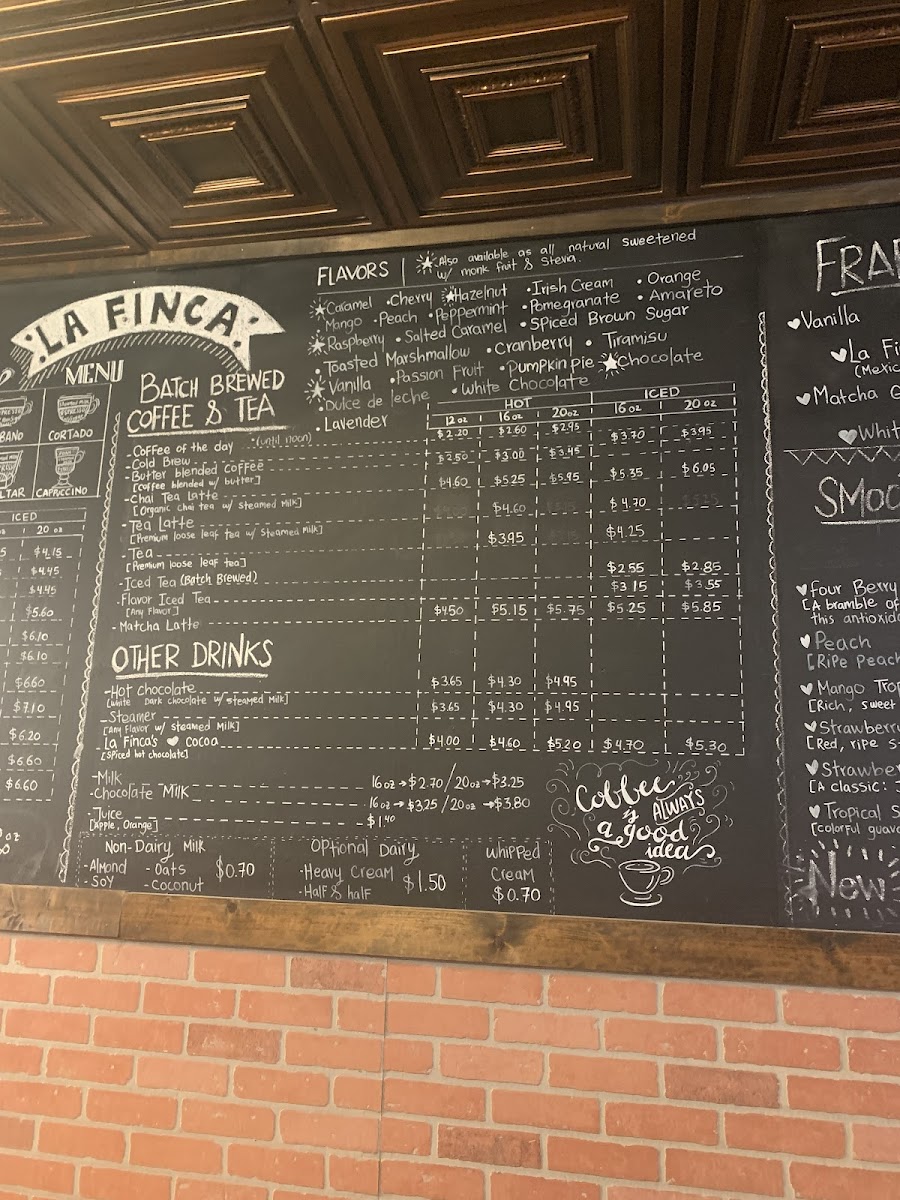 LA FINCA
MENU
BANO
CORTADO
LTAR
CAPPUCCINO
ICED
20 oz
$4.15
$4.45
$4.45
$5.60
$6.10
$6.10
$6.60
$7.10
$6.20
$6.60
$6.60
FLAVORS
Also available as all natural sweetened
w/ monk fruit & Stevia.
Caramel •Cherry Hazelnut •Irish Cream •Orange
•Mango •Peach •Peppermint •Pomegranate •Amareto
Raspberry •Salted Caramel •Spiced Brown Sugar
•Toasted Marshmallow •Cranberry •Tiramisu
Vanilla •Passion Fruit •Pumpkin pie Chocolate
•Dulce de leche •White Chocolate
•Lavender
BATCH BREWED
COFFEE & TEA
HOT ICED
12 oz 16 oz 20oz 16 oz 20 oz
-Coffee of the day -(until noon) $2.20 $2.60 $2.95
-Cold Brew $3.70 $3.95
-Butter blended coffee $2.50 $3.00 $3.45
[Coffee blended w/ butter]
-Chai Tea Latte $4.60 $5.25 $5.95 $5.35 $6.05
[Organic chai tea w/ Steamed Milk]
-Tea Latte $4.60 $4.70
[Premium loose leaf tea w/ Steamed Milk]
-Tea $3.95 $4.25
[Premium loose leaf tea]
-Iced Tea (Batch Brewed) $2.55 $2.85
-Flavor Iced Tea $3.15 $3.55
[Any Flavor]
-Matcha Latte $4.50 $5.15 $5.75 $5.25 $5.85
OTHER DRINKS
-Hot chocolate $3.65 $4.30 $4.95
[White Dark chocolate w/ steamed Milk]
-Steamer $3.65 $4.30 $4.95
[Any Flavor w/ steamed Milk]
La Finca's cocoa $4.00 $4.60 $5.20 $4.70 $5.30
[Spiced hot chocolate]
-Milk 16 oz→$2.70/20oz→$3.25
-Chocolate Milk 16 oz→$3.25/20 oz→$3.80
-Juice $1.40
[Apple, Orange]
Non-Dairy Milk
-Almond -Oats $0.70
-Soy -Coconut
Optional Dairy
-Heavy Cream $1.50
-Half & half
Whipped
Cream
$0.70
Coffee
is ALWAYS
a good
idea
FRA
Vanilla
La Fi
(Mexic
Matcha G
Whit
SMOO
Four Berry
[A bramble of
this antioxid
Peach
[Ripe Peach
Mango Trop
[Rich, sweet
Strawberry
[Red, ripe s
Strawber
[A classic:
Tropical S
[colorful guava
New